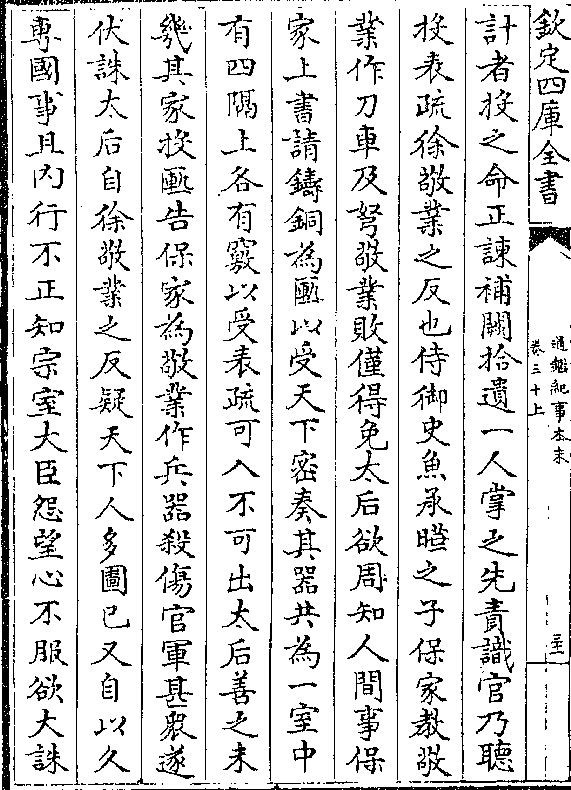 欽定四庫全書
通鑑紀事本末
卷三十上
計者投之命正諫補闕拾遺一人掌之先責識官乃聽
投表疏徐敬業之反也侍御史魚承曕之子保家教敬
業作刀車及弩敬業敗僅得免太后欲周知人間事保
家上書請鑄銅為匭以受天下密奏其器共為一室中
有四隔上各有竅以受表疏可入不可出太后善之未
幾其家投匭告保家為敬業作兵器殺傷官軍甚衆遂
伏誅太后自徐敬業之反疑天下人多圖已又自以久
専國事且内行不正知宗室大臣怨望心不服欲大誅